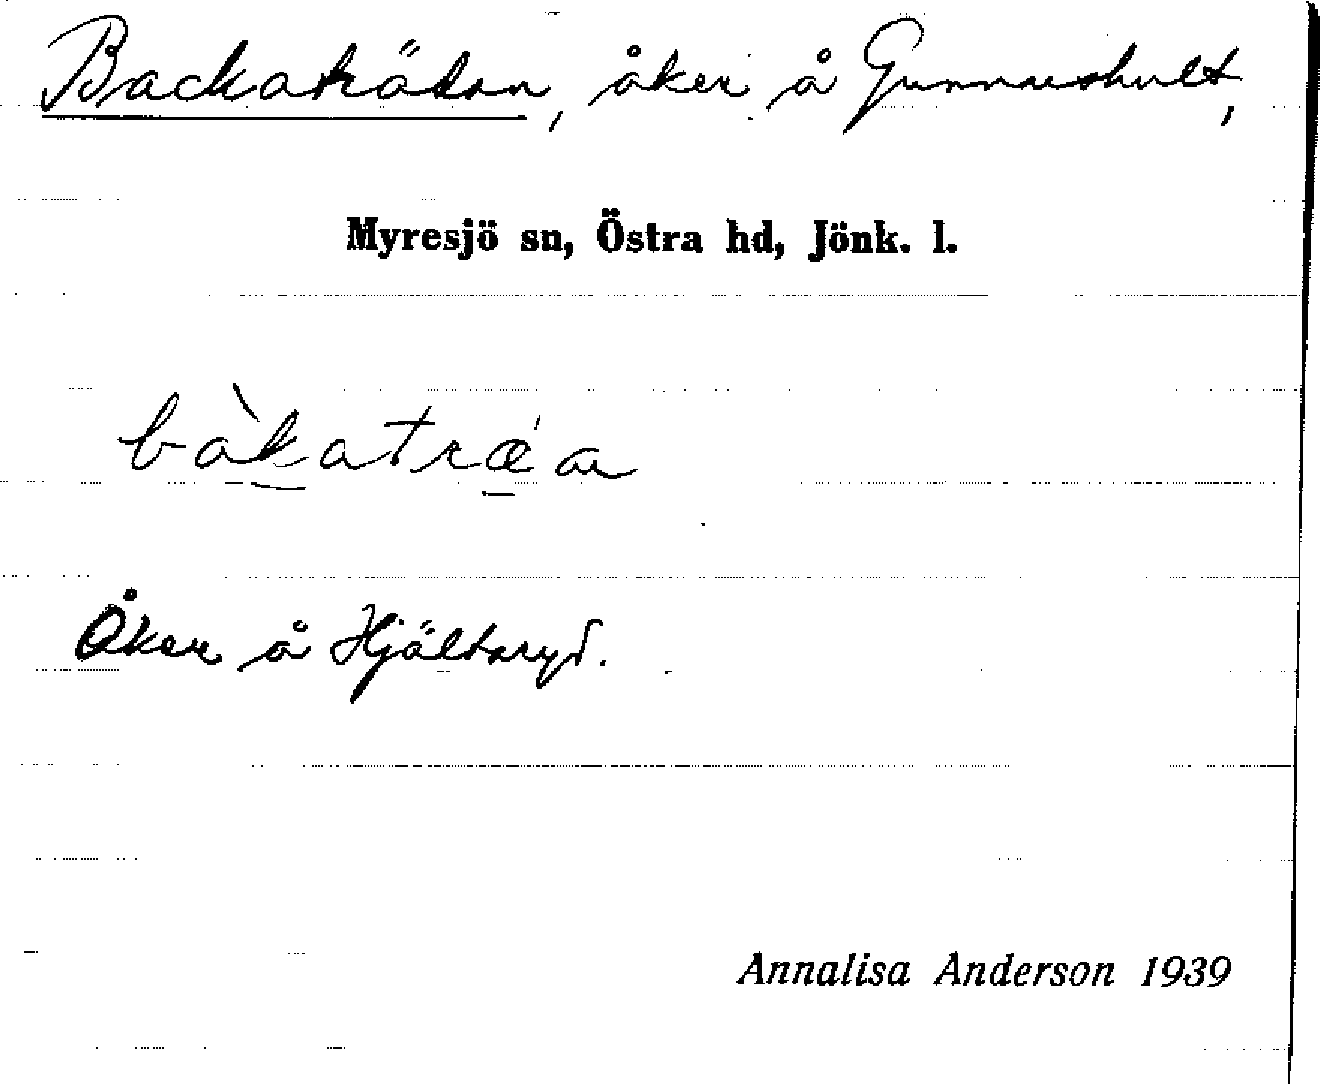 Backaträdan, åker å Gunnarshult,
Myresjö sn, Östra hd, Jönk. l.
bàkatræ´an
Åker å Hjältaryd.
Annalisa Anderson 1939